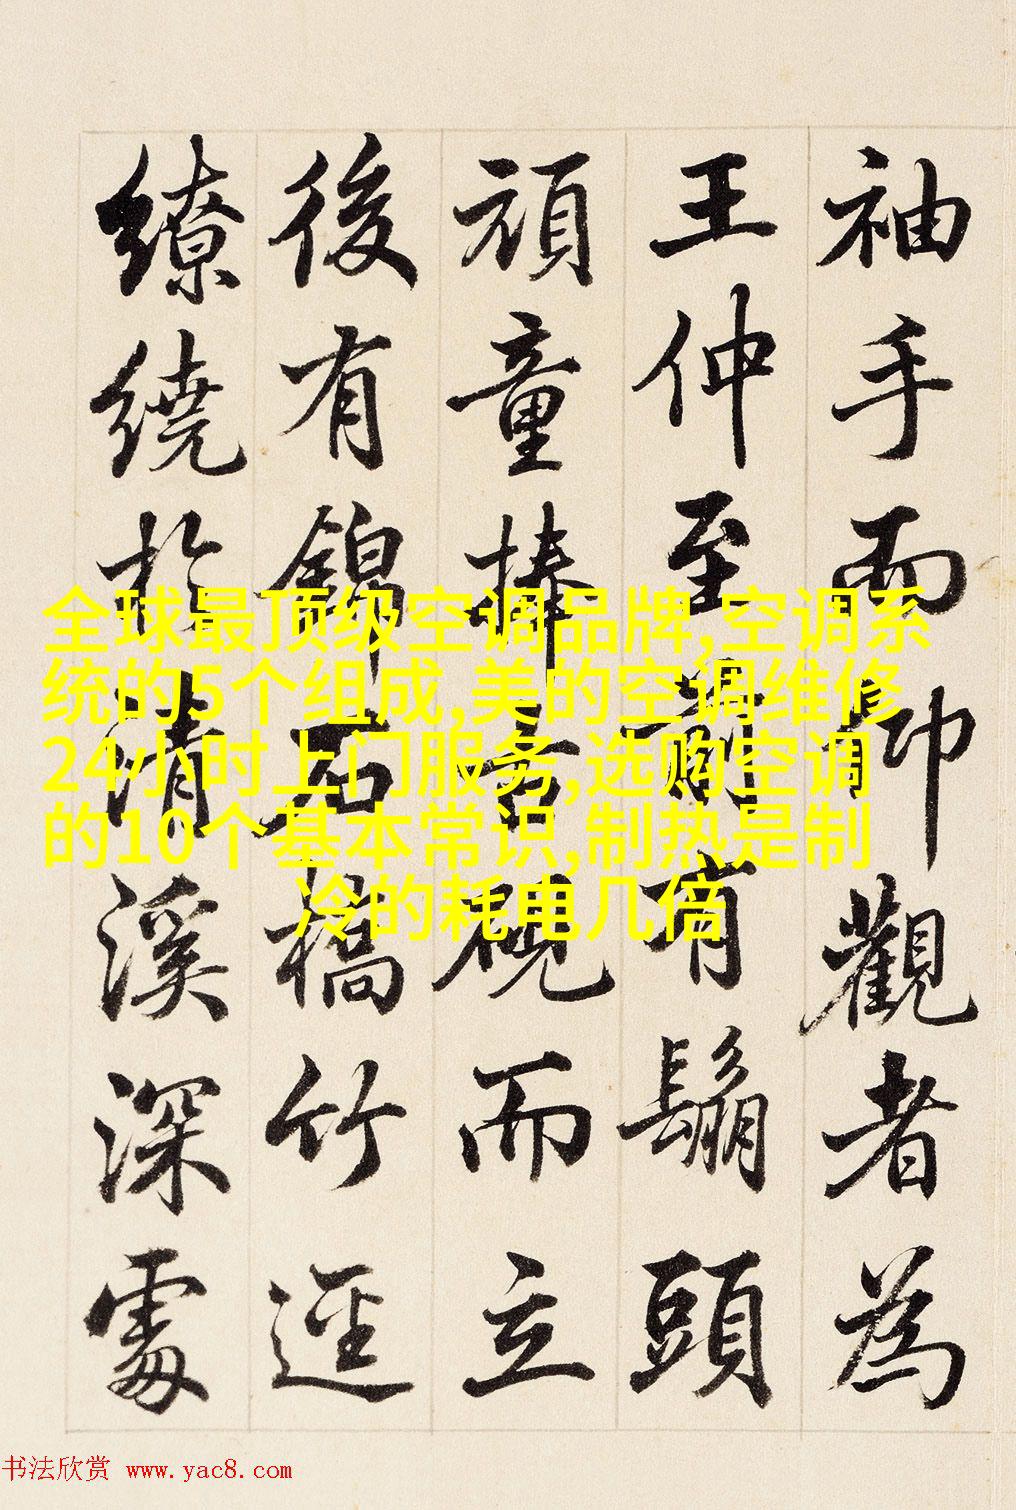 袖手而仰觀者為
王仲至前有鬅頭
頑童捧古硯而立
後有錦石橋竹逕
繚繞於清溪深處
全球最顶级空调品牌,空调系
统的5个组成,美的空调维修
24小时上门服务,选购空调
的10个基本常识,制热是制
冷的耗电几倍
书法欣赏 www.yac8.com